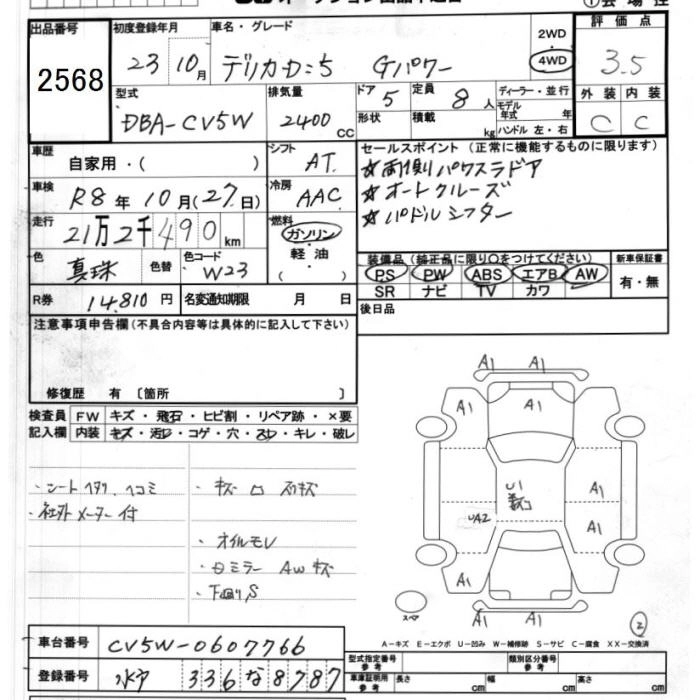 出品番号 2568
初度登録年月 23 10月
車名・グレード デリカD:5 Gパワー
2WD
4WD
評価点 3.5
型式 DBA-CV5W
排気量 2400 CC
ドア 5
形状
定員 8人
積載 kg
ディーラー・並行
モデル年式 年
ハンドル 左・右
外装 内装
C C
車歴 自家用・( )
シフト AT
セールスポイント (正常に機能するものに限ります)
☆両側パワスラドア
☆オートクルーズ
☆パドルシフター
車検 R8年10月(27日)
冷房 AAC
走行 21万2千490km
燃料 ガソリン
軽油
( )
色 真珠 色替
色コード W23
装備品 (純正品に限り○をつけてください)
PS PW ABS エアB AW
SR ナビ TV カワ
新車保証書
有・無
R券 14,810円
名変通知期限 月 日
後日品
注意事項申告欄(不具合内容等は具体的に記入して下さい)
修復歴 有 〔箇所 〕
検査員 FW キズ・飛石・ヒビ割・リペア跡・×要
記入欄 内装 キズ・汚レ・コゲ・穴・スレ・キレ・破レ
・シートヘタリ、ヘコミ
・社外メーター付
・オイルモレ
・ロミラー AWキズ
・下回りS
A1 A1
A1 A1 A1
U1
A1
UA2 A1
A1 A1
A1 A1
スペア
②
A-キズ E-エクボ U-凹み W-補修跡 S-サビ C-腐食 XX-交換済
車台番号 CV5W-0607766
登録番号 水戸 336 な 8787
型式指定番号 参考
類別区分番号 参考
車庫証明用 参考
長さ cm 幅 cm 高さ cm